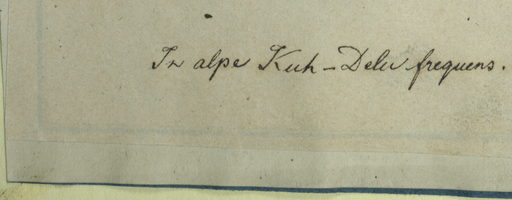 In alpe Kuh-Delu frequens.